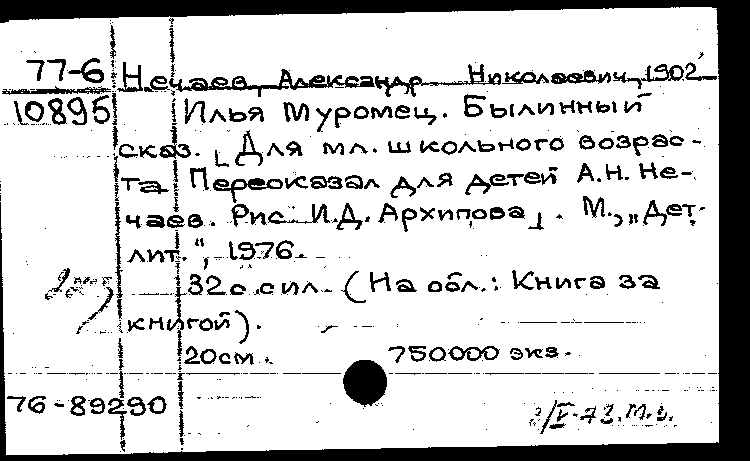 77-6 Нечаев, Александр Николаевич, 1902
10895 Илья Муромец. Былинный
сказ. [Для мл. школьного возрас-
та Пересказал для детей А.Н. Не-
чаев. Рис. И.Д. Архипова]. М., „Дет.
лит.“, 1976.
32 с. с ил. (На обл.: Книга за
книгой).
20см. 750000 экз.
76-89290